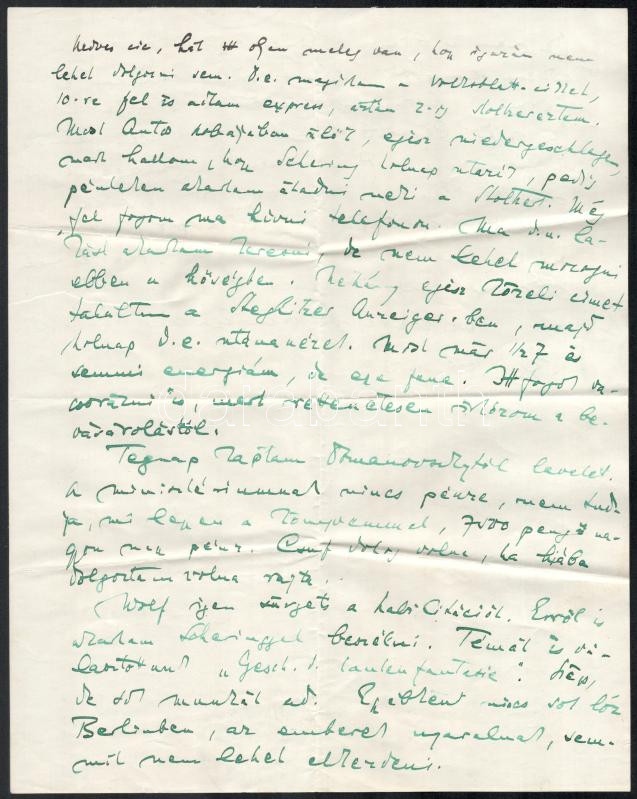 kedves cica, hát itt olyan meleg van, hogy igazán nem
lehet dolgozni sem. D.e. megírtam a Volksblatt-cikket,
10-re fel is adtam express, aztán 2-ig
Most Antos szobájában ülök, egész niedergeschlagen,
mert hallom, hogy Schering holnap utazik, pedig
pénteken akartam átadni neki a Még
fel fogom ma hívni telefonon. Ma d.u. la-
kást akartam keresni, de nem lehet mozogni
ebben a hőségben. Néhány egész közeli címet
találtam a Steglitzer Anzeiger-ben, majd
holnap d.e. utánanézek. Most már 1/2 7 és
semmi energiám, de ez a Itt fogok va-
csorázni is, mert rettenetesen irtózom a be-
vásárlástól.
Tegnap kaptam Domanovszkytól levelet.
A minisztériumnak nincs pénze, nem tud-
ja, mi legyen a könyvemmel, 7000 pengő na-
gyon nagy pénz. Csúf dolog volna, ha hiába
dolgoztam volna rajta.
Wolf igen sürgeti a habilitációt. Erről is
akartam Scheringgel beszélni. Témát is vá-
lasztottunk „Gesch. d. Lautenfantasie”. Szép,
de sok munkát ad. Egyébként nincs sok hír
Berlinben, az emberek nyaralnak, sem-
mit nem lehet elkezdeni.